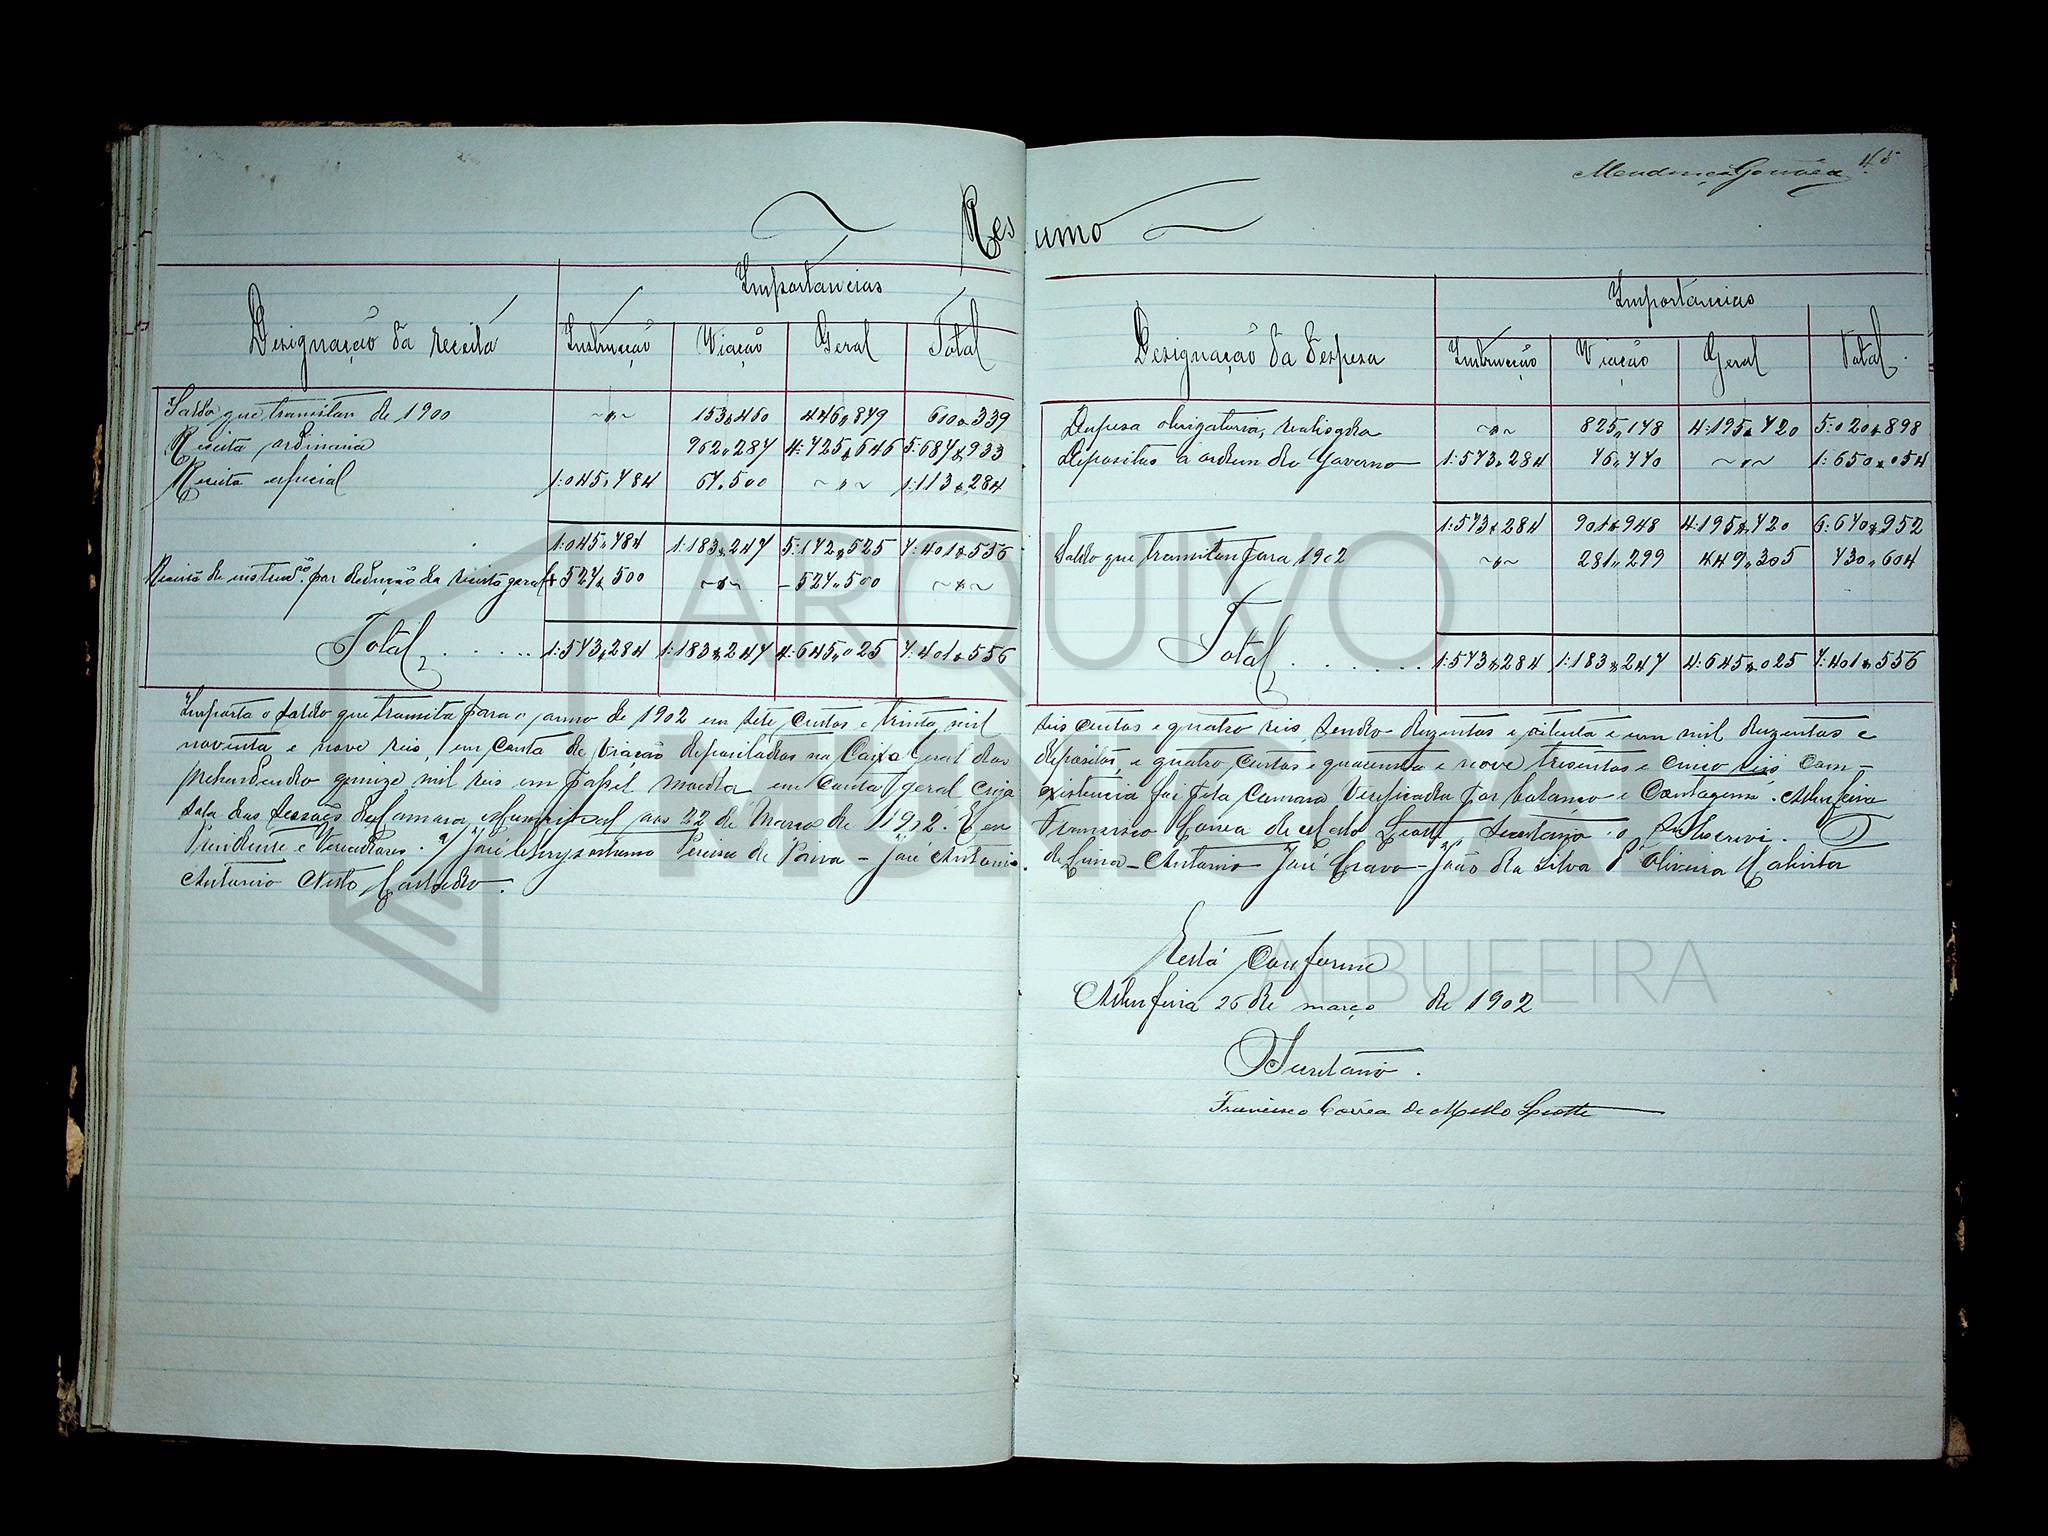 45
Resumo
Importancias
Designação da receita
Instrucção Viação Geral Total
Saldo que transitou de 1900 ~"~ 153,460 446,879 600,339
Receita ordinaria 962,287 4:725,646 5:687,933
Receita especial 1:045,784 67,500 ~"~ 1:113,284
1:045,784 1:183,247 5:172,525 7:401,556
Receita de instrucção por deducção da receita geral + 527,500 ~"~ - 527,500 ~"~
Total 1:573,284 1:183,247 4:645,025 7:401,556
Importa o saldo que transita para o anno de 1902 em sete centos e trinta mil
noventa e nove reis, em conta de viação depositados na Caixa Geral dos
prehendendo quinze mil reis em papel moeda em conta geral cuja
Sala das Sessões da Camara Municipal aos 22 de Março de 1902. E eu
Presidente e Vereadores. a) José Pereira de Paiva - José Antonio
Antonio Neto
Importancias
Designação da despesa
Instrucção Viação Geral Total
Despesa obrigatoria, realisada ~"~ 825,178 4:195,720 5:020,898
Depositos á ordem do Governo 1:573,284 76,770 ~"~ 1:650,054
1:573,284 901,948 4:195,720 6:670,952
Saldo que transitou para 1902 ~"~ 281,299 449,305 730,604
Total 1:573,284 1:183,247 4:645,025 7:401,556
seis centos e quatro reis, sendo duzentos e oitenta e um mil duzentos e
depositos, e quatro centos e quarenta e nove trezentos e cinco reis com-
existencia foi pela Camara verificada por balanço e contagem. Albufeira
Francisco Correa de Mello Leotte, Secretario o subscrevi. O
de Lima - Antonio José Cravo - João da Silva d'Oliveira
Está conforme
Albufeira 26 de março de 1902
O Secretario.
Francisco Corrêa de Mello Leotte
ARQUIVO
MUNICIPAL
ALBUFEIRA